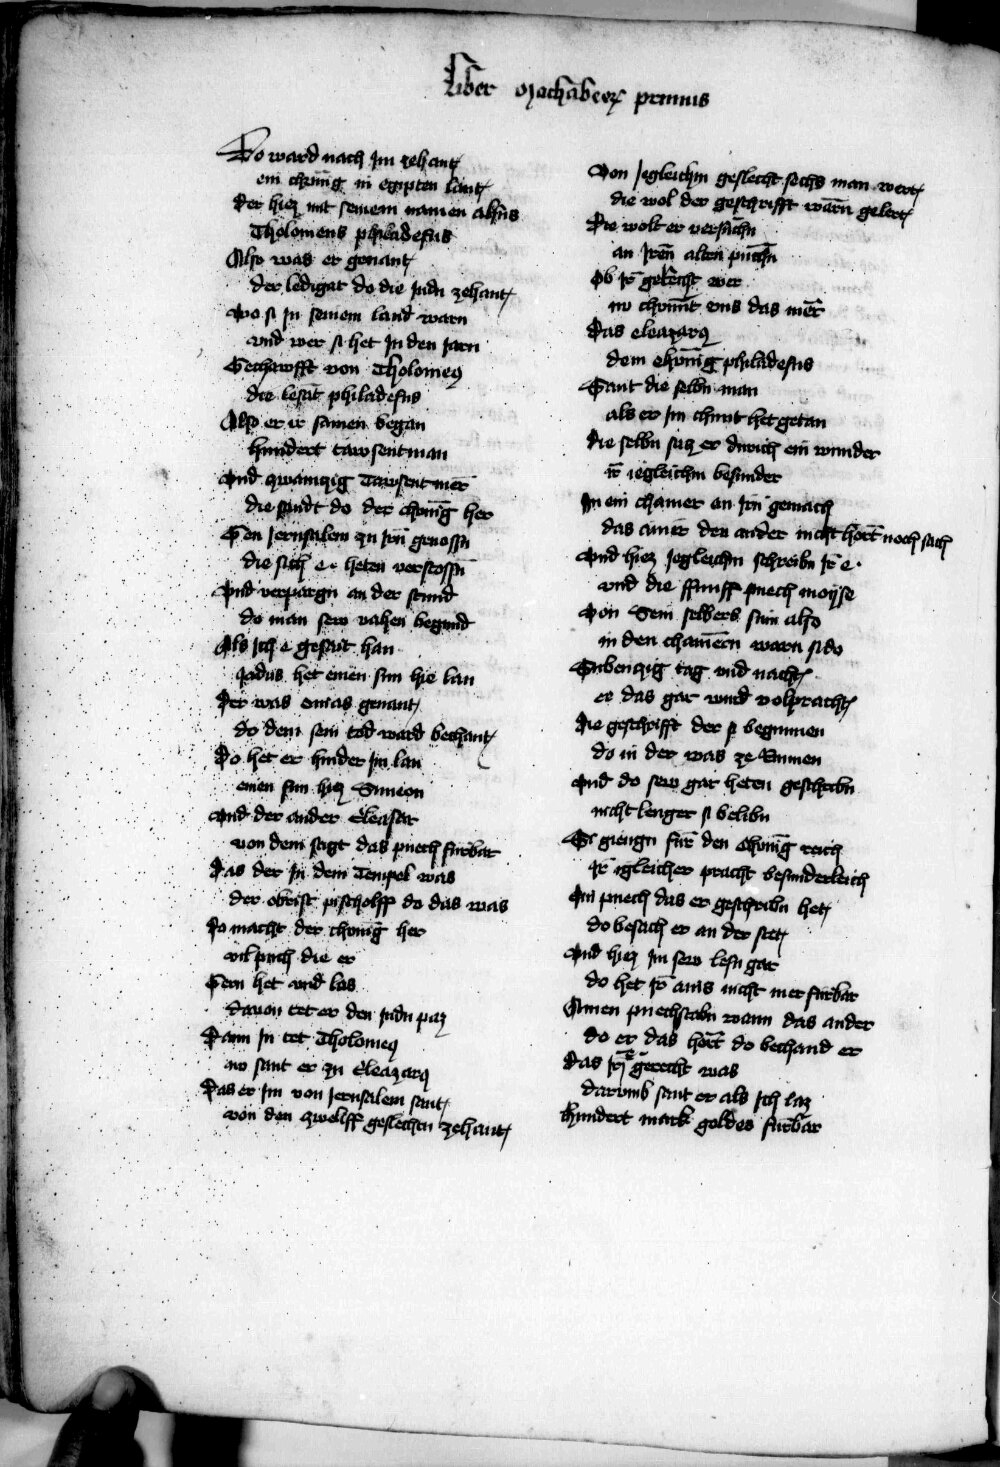 Liber Machabeorum primus
Do ward nach Jm zehant
ein chünig in egipten lant
Der hiez mit seinem namen alsus
Tholomeus philadefus
Also was er genant
der ledigat do die Judn zehant
wo si Jn seinem land warn
vnd wer si het Jn den Jarn
Gechawfft von Tholomeo
die lesat philadefus
Also er ir samen began
hundert tawsent man
vnd zwainczig Tawsent mer
die sandt do der chünig her
Gen Jerusalem zu Jrn genossn
die sich e heten verstossn
vnd verpargn an der stund
do man sew vahen begund
Als Jch e gesait han
Jadus het einen sun hie lan
Der was onias genant
do dem sein tod ward bechant
Do het er hinder Jm lan
einen sun hiez Simeon
vnd der ander Eleasar
von dem sagt das puech furbar
Das der Jn dem Tempel was
der obrist pischolff do das was
Do macht der chünig her
vil puch die er
Gern het vnd las
dauon tet er den Judn paz
Dann Jn tet Tholomeo
nu sant er zu Eleazaro
Das er Jm von Jerusalem sant
von den zwelff geslechtn zehant
Von Jegleichm geslecht sechs man wert
die wol der geschrifft wärn gelert
Die wolt er versuchn
an Jren alten puchn
Ob Jr gerecht wer
nu chumt vns das mer
Das eleazaro
dem chünig philadefus
Sant die selbn man
als er Jm chunt het getan
Die selbn saz er durich ein wunder
ir iegleichm besunder
Jn ein chamer an Jrn gemach
das ainer den ander nicht hort noch sach
vnd hiez Jegleichn schreibn Jr e
vnd die ffunff puech moyse
Von Sein selbers sun also
in den chamern warn si do
Subenczig tag vnd nacht
er das gar wurd volpracht
Die geschrifft der si begunnen
do in der was ze Sinnen
vnd do sew gar heten geschribn
nicht lenger si belibn
Si giengn für den chünig reich
Jr igleicher pracht besunderleich
Ain puech das er geschribn het
do besach er an der stet
vnd hiez Jm sew lesn gar
do het Jr ains nicht mer furbar
Ainen puechstabn wann das ander
do er das hört do bechand er
Das Jr e gerecht was
darumb sant er als Jch laz
hundert mark goldes furbar